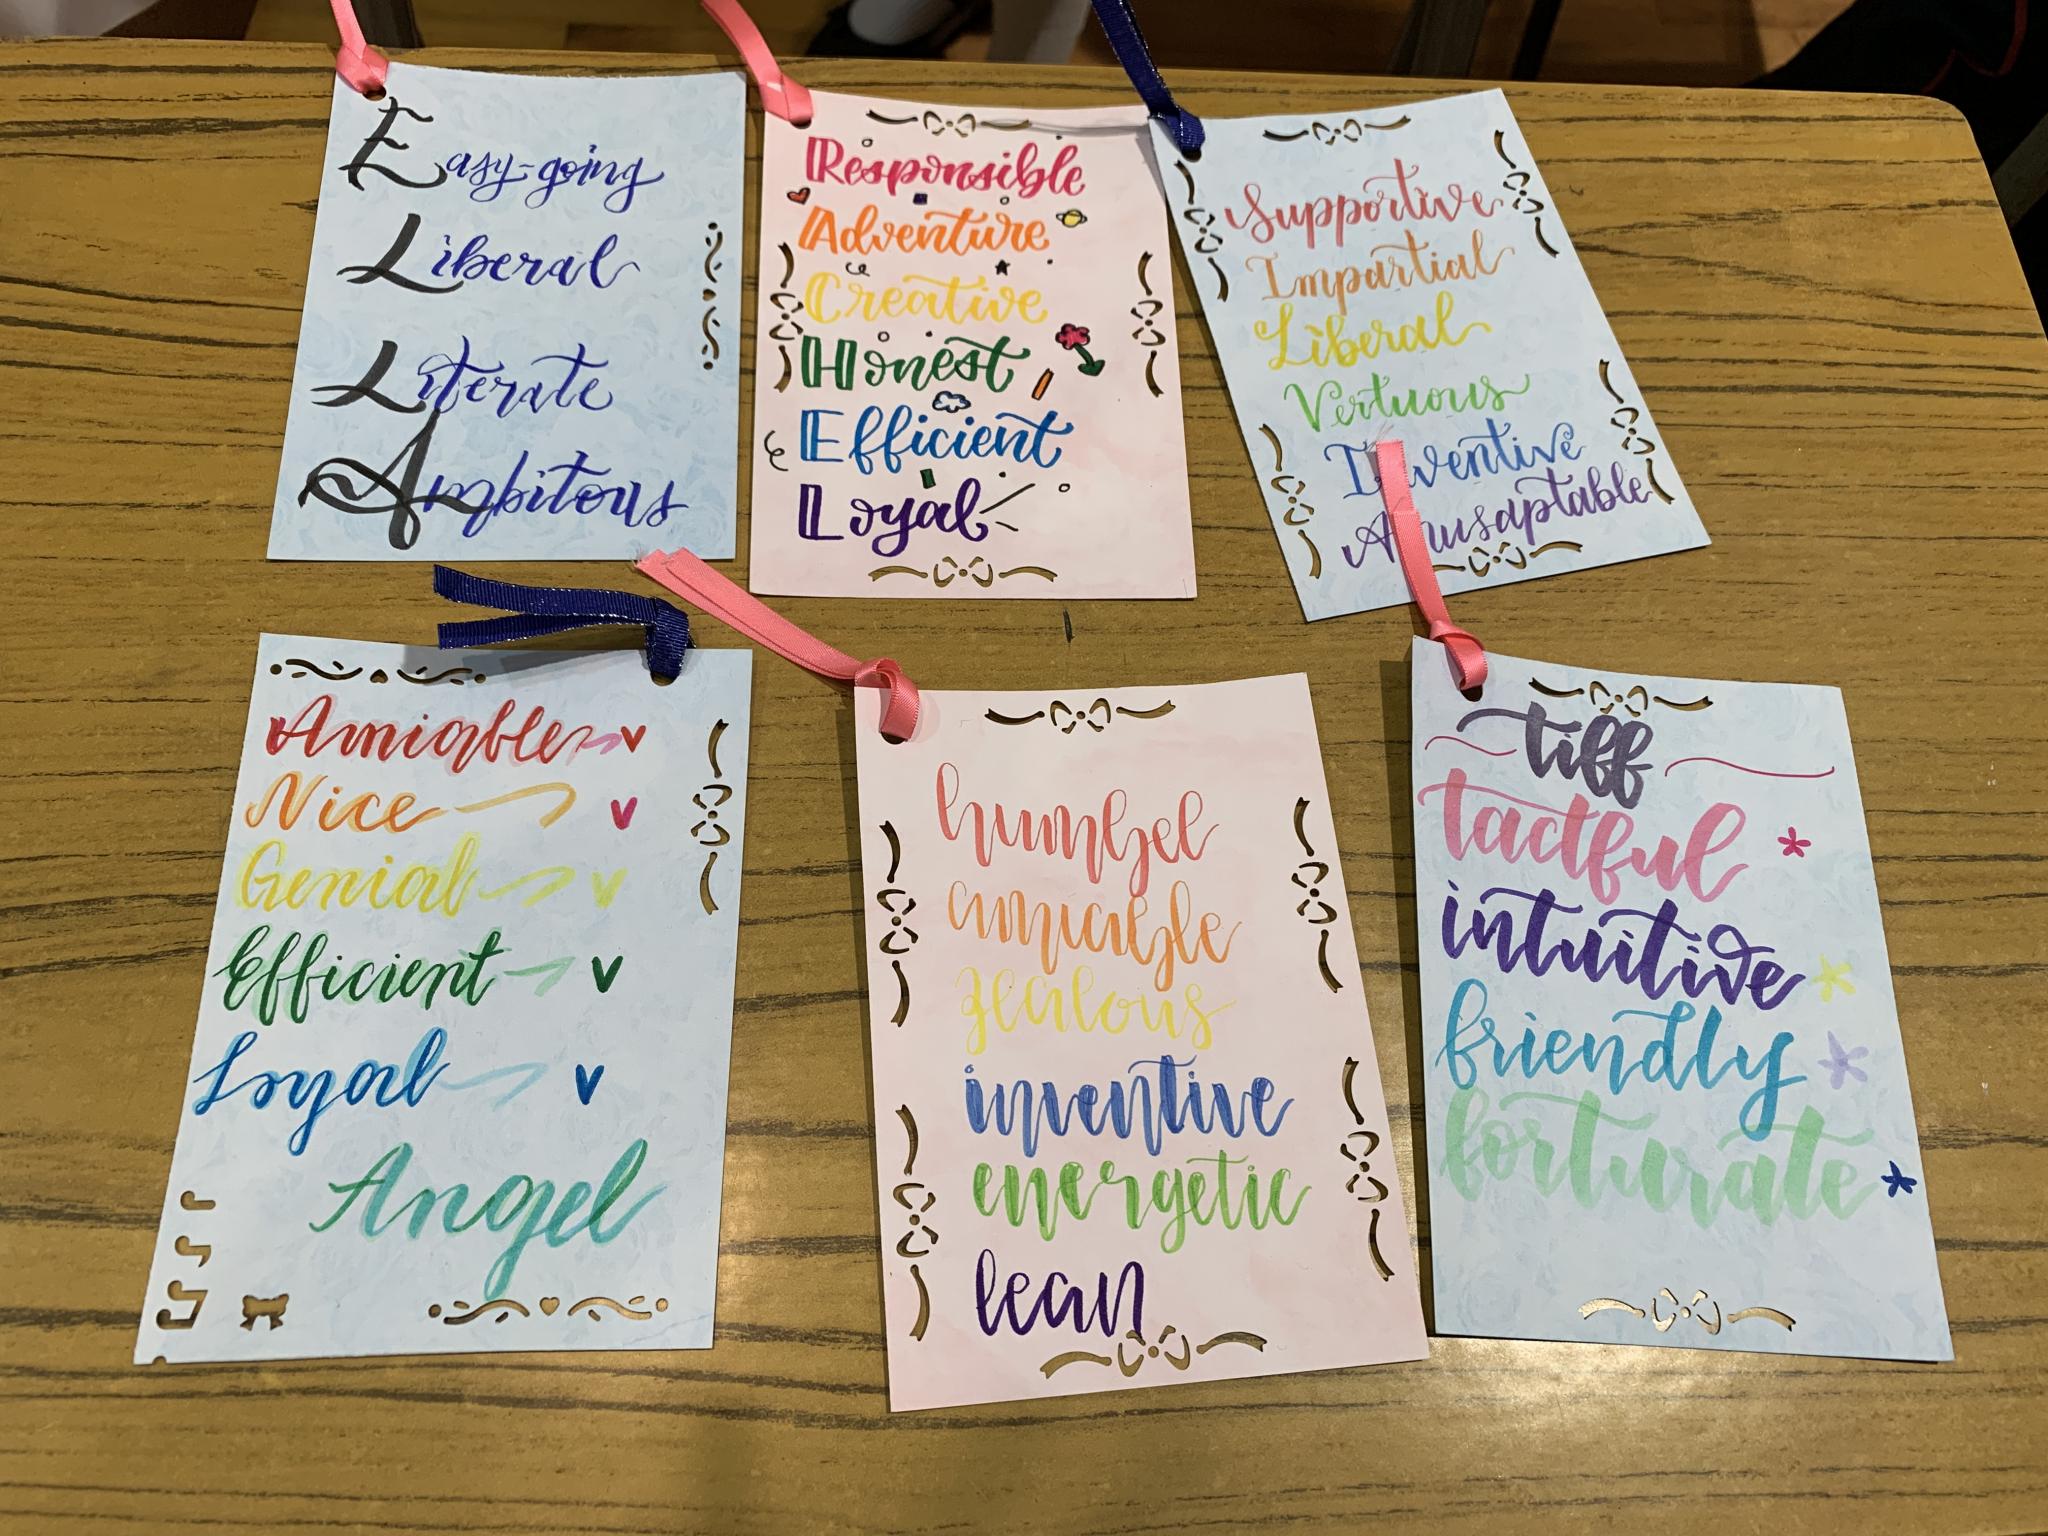 Easy-going
Liberal
Literate
Ambitous
Responsible
Adventure
Creative
Honest
Efficient
Loyal
Supportive
Impartial
Liberal
Vertuous
Inventive
Amusaptable
Amiable
Nice
Genial
Efficient
Loyal
Angel
humbel
amiable
zealous
inventive
energetic
lean
tiff
tactful
intuitive
friendly
forturate